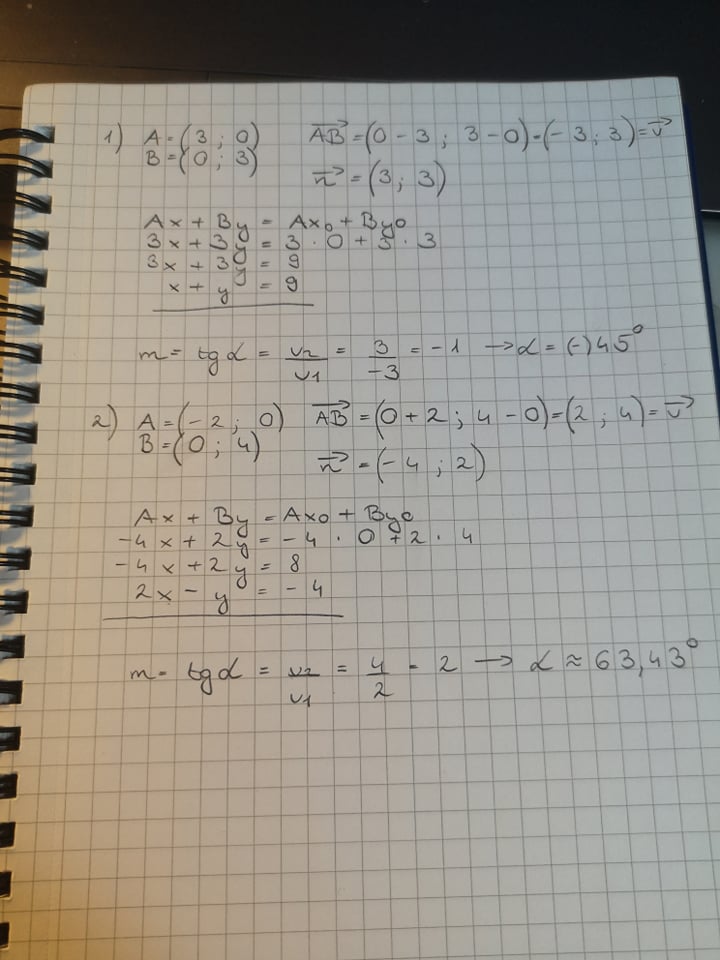 1) A = (3 ; 0) AB⃗ = (0 - 3 ; 3 - 0) = (- 3 ; 3) = v⃗
B = (0 ; 3) n⃗ = (3 ; 3)
Ax + By = Ax₀ + By₀
3x + 3y = 3 · 0 + 3 · 3
3x + 3y = 9
x + y = 9
m = tg α = v₂/v₁ = 3/-3 = - 1 → α = (-) 45°
2) A = (- 2 ; 0) AB⃗ = (0 + 2 ; 4 - 0) = (2 ; 4) = v⃗
B = (0 ; 4) n⃗ = (- 4 ; 2)
Ax + By = Ax₀ + By₀
-4x + 2y = - 4 · 0 + 2 · 4
-4x + 2y = 8
2x - y = - 4
m = tg α = v₂/v₁ = 4/2 = 2 → α ≈ 63,43°